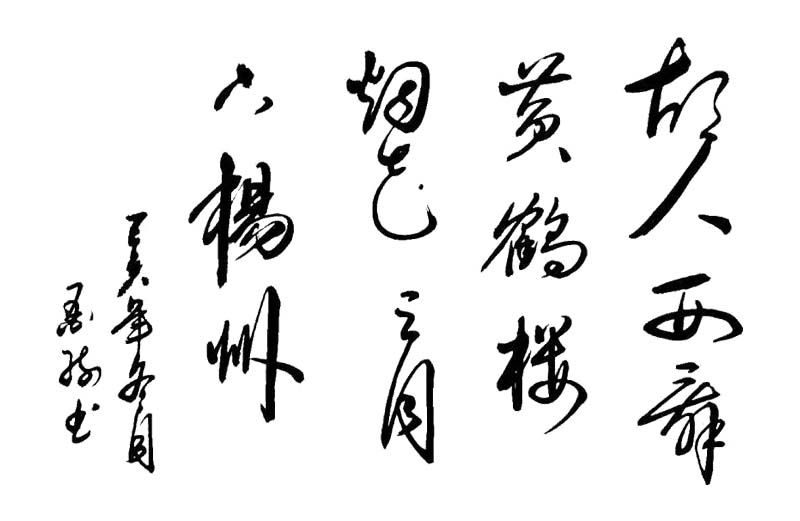 故人西辞
黄鹤楼
烟花三月
下楊州
己亥年冬月
书